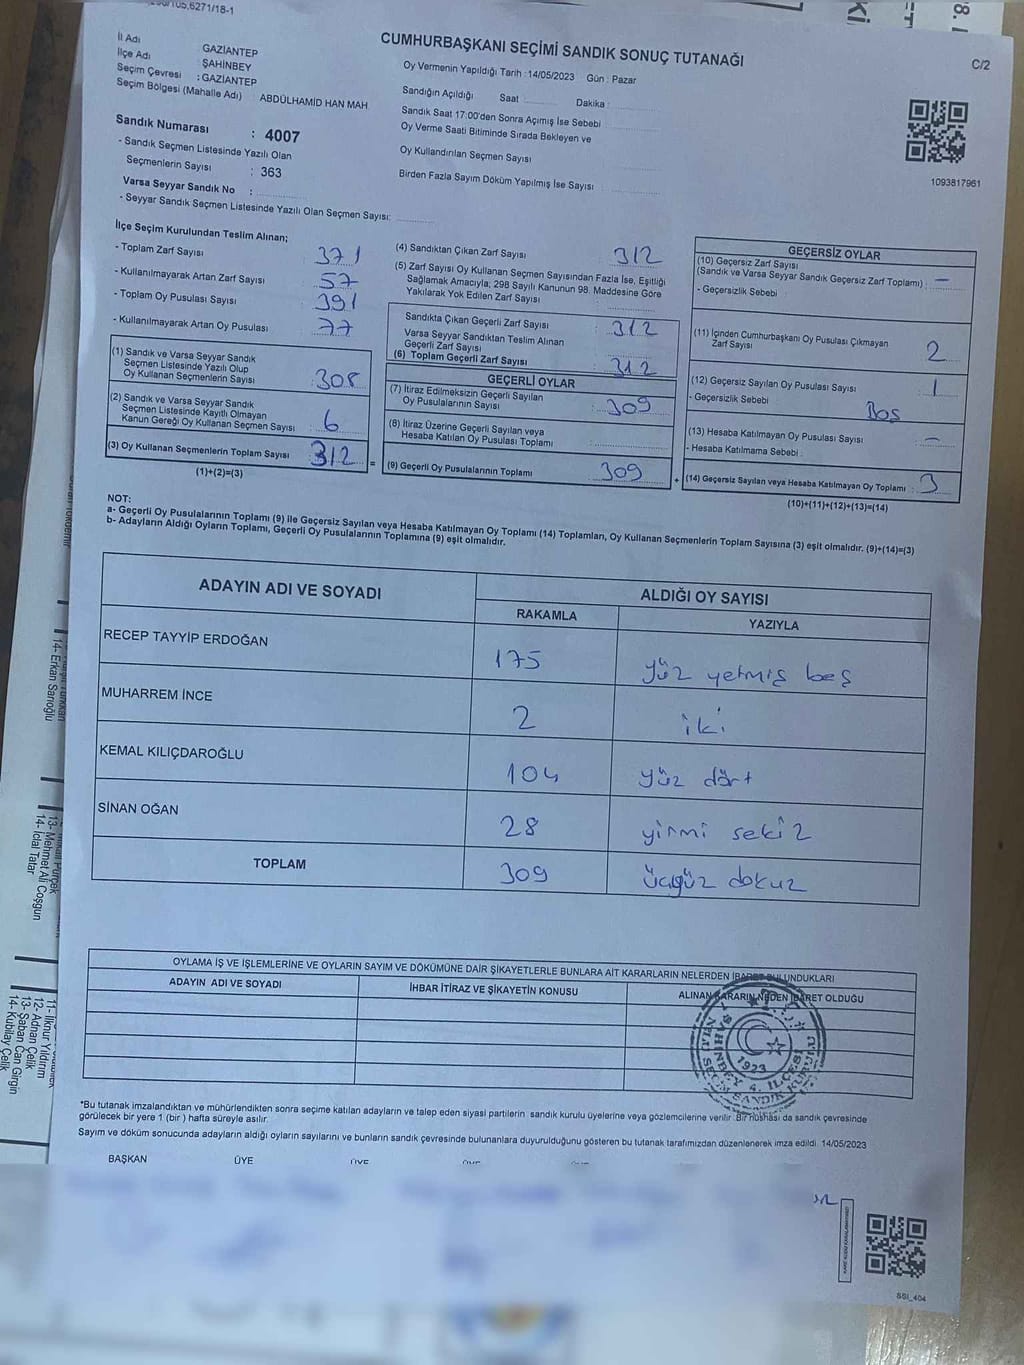 6271/18-1
CUMHURBAŞKANI SEÇİMİ SANDIK SONUÇ TUTANAĞI
C/2
İl Adı GAZİANTEP
İlçe Adı ŞAHİNBEY
Seçim Çevresi : GAZİANTEP
Seçim Bölgesi (Mahalle Adı) ABDÜLHAMİD HAN MAH
Oy Vermenin Yapıldığı Tarih : 14/05/2023 Gün : Pazar
Sandığın Açıldığı Saat Dakika :
Sandık Saat 17:00'den Sonra Açımış İse Sebebi
Oy Verme Saati Bitiminde Sırada Bekleyen ve
Oy Kullandırılan Seçmen Sayısı
Birden Fazla Sayım Döküm Yapılmış İse Sayısı
1093817961
Sandık Numarası : 4007
- Sandık Seçmen Listesinde Yazılı Olan
Seçmenlerin Sayısı : 363
Varsa Seyyar Sandık No :
- Seyyar Sandık Seçmen Listesinde Yazılı Olan Seçmen Sayısı:
İlçe Seçim Kurulundan Teslim Alınan;
- Toplam Zarf Sayısı 371
- Kullanılmayarak Artan Zarf Sayısı 57
- Toplam Oy Pusulası Sayısı 391
- Kullanılmayarak Artan Oy Pusulası 77
(1) Sandık ve Varsa Seyyar Sandık
Seçmen Listesinde Yazılı Olup
Oy Kullanan Seçmenlerin Sayısı : 308
(2) Sandık ve Varsa Seyyar Sandık
Seçmen Listesinde Kayıtlı Olmayan
Kanun Gereği Oy Kullanan Seçmen Sayısı : 6
(3) Oy Kullanan Seçmenlerin Toplam Sayısı 312
(1)+(2)=(3)
(4) Sandıktan Çıkan Zarf Sayısı 312
(5) Zarf Sayısı Oy Kullanan Seçmen Sayısından Fazla İse, Eşitliği
Sağlamak Amacıyla; 298 Sayılı Kanunun 98. Maddesine Göre
Yakılarak Yok Edilen Zarf Sayısı
Sandıkta Çıkan Geçerli Zarf Sayısı : 312
Varsa Seyyar Sandıktan Teslim Alınan
Geçerli Zarf Sayısı
(6) Toplam Geçerli Zarf Sayısı : 312
GEÇERLİ OYLAR
(7) İtiraz Edilmeksizin Geçerli Sayılan
Oy Pusulalarının Sayısı : 309
(8) İtiraz Üzerine Geçerli Sayılan veya
Hesaba Katılan Oy Pusulası Toplamı
= (9) Geçerli Oy Pusulalarının Toplamı 309
GEÇERSİZ OYLAR
(10) Geçersiz Zarf Sayısı
(Sandık ve Varsa Seyyar Sandık Geçersiz Zarf Toplamı) : -
- Geçersizlik Sebebi
(11) İçinden Cumhurbaşkanı Oy Pusulası Çıkmayan
Zarf Sayısı 2
(12) Geçersiz Sayılan Oy Pusulası Sayısı : 1
- Geçersizlik Sebebi Boş
(13) Hesaba Katılmayan Oy Pusulası Sayısı : -
- Hesaba Katılmama Sebebi :
+ (14) Geçersiz Sayılan veya Hesaba Katılmayan Oy Toplamı : 3
(10)+(11)+(12)+(13)=(14)
NOT:
a- Geçerli Oy Pusulalarının Toplamı (9) ile Geçersiz Sayılan veya Hesaba Katılmayan Oy Toplamı (14) Toplamları, Oy Kullanan Seçmenlerin Toplam Sayısına (3) eşit olmalıdır. (9)+(14)=(3)
b- Adayların Aldığı Oyların Toplamı, Geçerli Oy Pusulalarının Toplamına (9) eşit olmalıdır.
ADAYIN ADI VE SOYADI ALDIĞI OY SAYISI
RAKAMLA YAZIYLA
RECEP TAYYİP ERDOĞAN 175 yüz yetmiş beş
MUHARREM İNCE 2 iki
KEMAL KILIÇDAROĞLU 104 yüz dört
SİNAN OĞAN 28 yirmi sekiz
TOPLAM 309 üçyüz dokuz
OYLAMA İŞ VE İŞLEMLERİNE VE OYLARIN SAYIM VE DÖKÜMÜNE DAİR ŞİKAYETLERLE BUNLARA AİT KARARLARIN NELERDEN İBARET BULUNDUKLARI
ADAYIN ADI VE SOYADI İHBAR İTİRAZ VE ŞİKAYETİN KONUSU ALINAN KARARIN NEDEN İBARET OLDUĞU
ŞAHİNBEY 4. İLÇE SEÇİM SANDIK KURULU
1923
*Bu tutanak imzalandıktan ve mühürlendikten sonra seçime katılan adayların ve talep eden siyasi partilerin sandık kurulu üyelerine veya gözlemcilerine verilir. Bir nüshası da sandık çevresinde
görülecek bir yere 1 (bir ) hafta süreyle asılır.
Sayım ve döküm sonucunda adayların aldığı oyların sayılarını ve bunların sandık çevresinde bulunanlara duyurulduğunu gösteren bu tutanak tarafımızdan düzenlenerek imza edildi. 14/05/2023
BAŞKAN ÜYE ÜYE
SSI_404
14- Erkan Sarıoğlu
13- Mehmet Ali Coşgun
14- İclal Tatar
11- İlknur Yıldırım
12- Adnan Çelik
13- Şaban Can Girgin
14- Kubilay Çelik